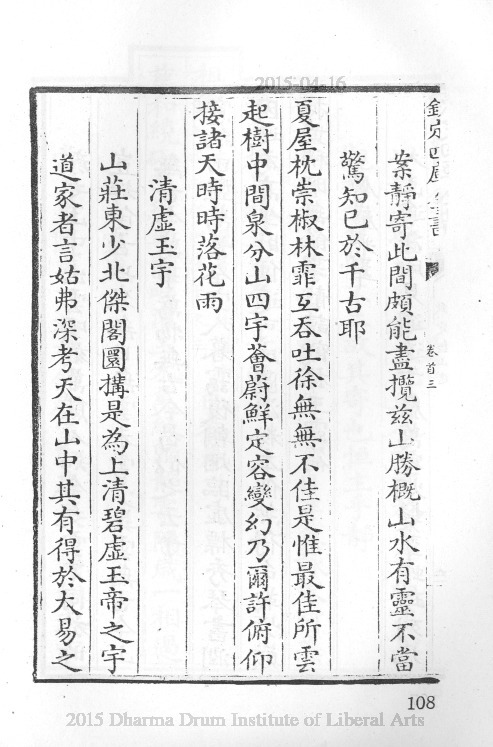 2015-04-16
欽定四庫全書
卷首三
案靜寄此間頗能盡攬兹山勝概山水有靈不當
驚知己於千古耶
夏屋枕崇椒林霏互吞吐徐無無不佳是惟最佳所雲
起樹中間泉分山四宇薈蔚鮮定容變幻乃爾許俯仰
接諸天時時落花雨
清虛玉宇
山莊東少北傑閣圜搆是為上清碧虛玉帝之宇
道家者言姑弗深考天在山中其有得於大易之
108
2015 Dharma Drum Institute of Liberal Arts